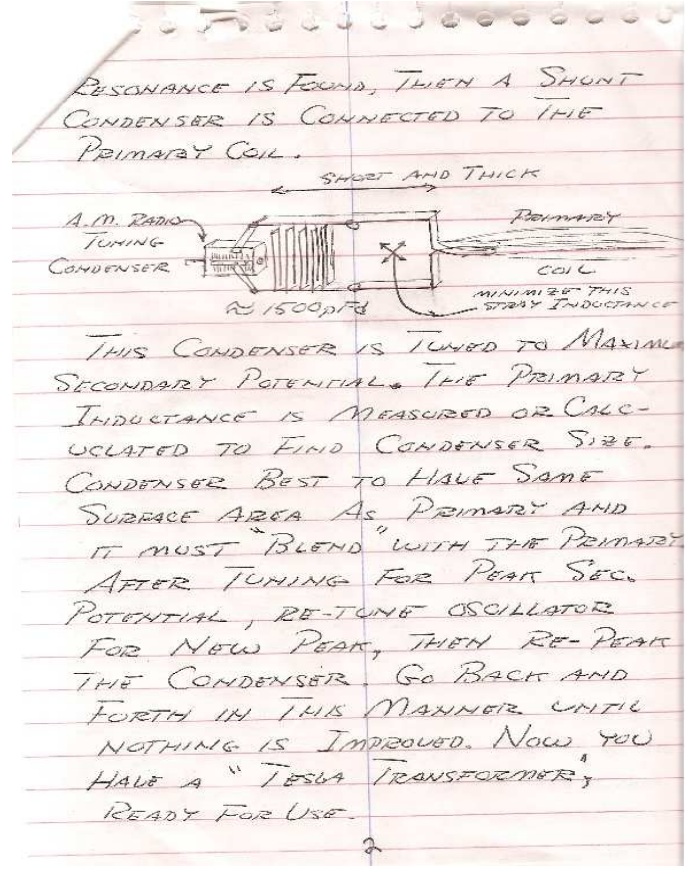 RESONANCE IS FOUND, THEN A SHUNT
CONDENSER IS CONNECTED TO THE
PRIMARY COIL.
SHORT AND THICK
A.M. RADIO
TUNING
CONDENSER
PRIMARY
COIL
≈ 1500pFd
MINIMIZE THIS
STRAY INDUCTANCE
THIS CONDENSER IS TUNED TO MAXIMUM
SECONDARY POTENTIAL. THE PRIMARY
INDUCTANCE IS MEASURED OR CALC-
UCLATED TO FIND CONDENSER SIZE.
CONDENSER BEST TO HAVE SAME
SURFACE AREA AS PRIMARY AND
IT MUST "BLEND" WITH THE PRIMARY.
AFTER TUNING FOR PEAK SEC.
POTENTIAL, RE-TUNE OSCILLATOR
FOR NEW PEAK, THEN RE-PEAK
THE CONDENSER. GO BACK AND
FORTH IN THIS MANNER UNTIL
NOTHING IS IMPROVED. NOW YOU
HAVE A "TESLA TRANSFORMER",
READY FOR USE.
2